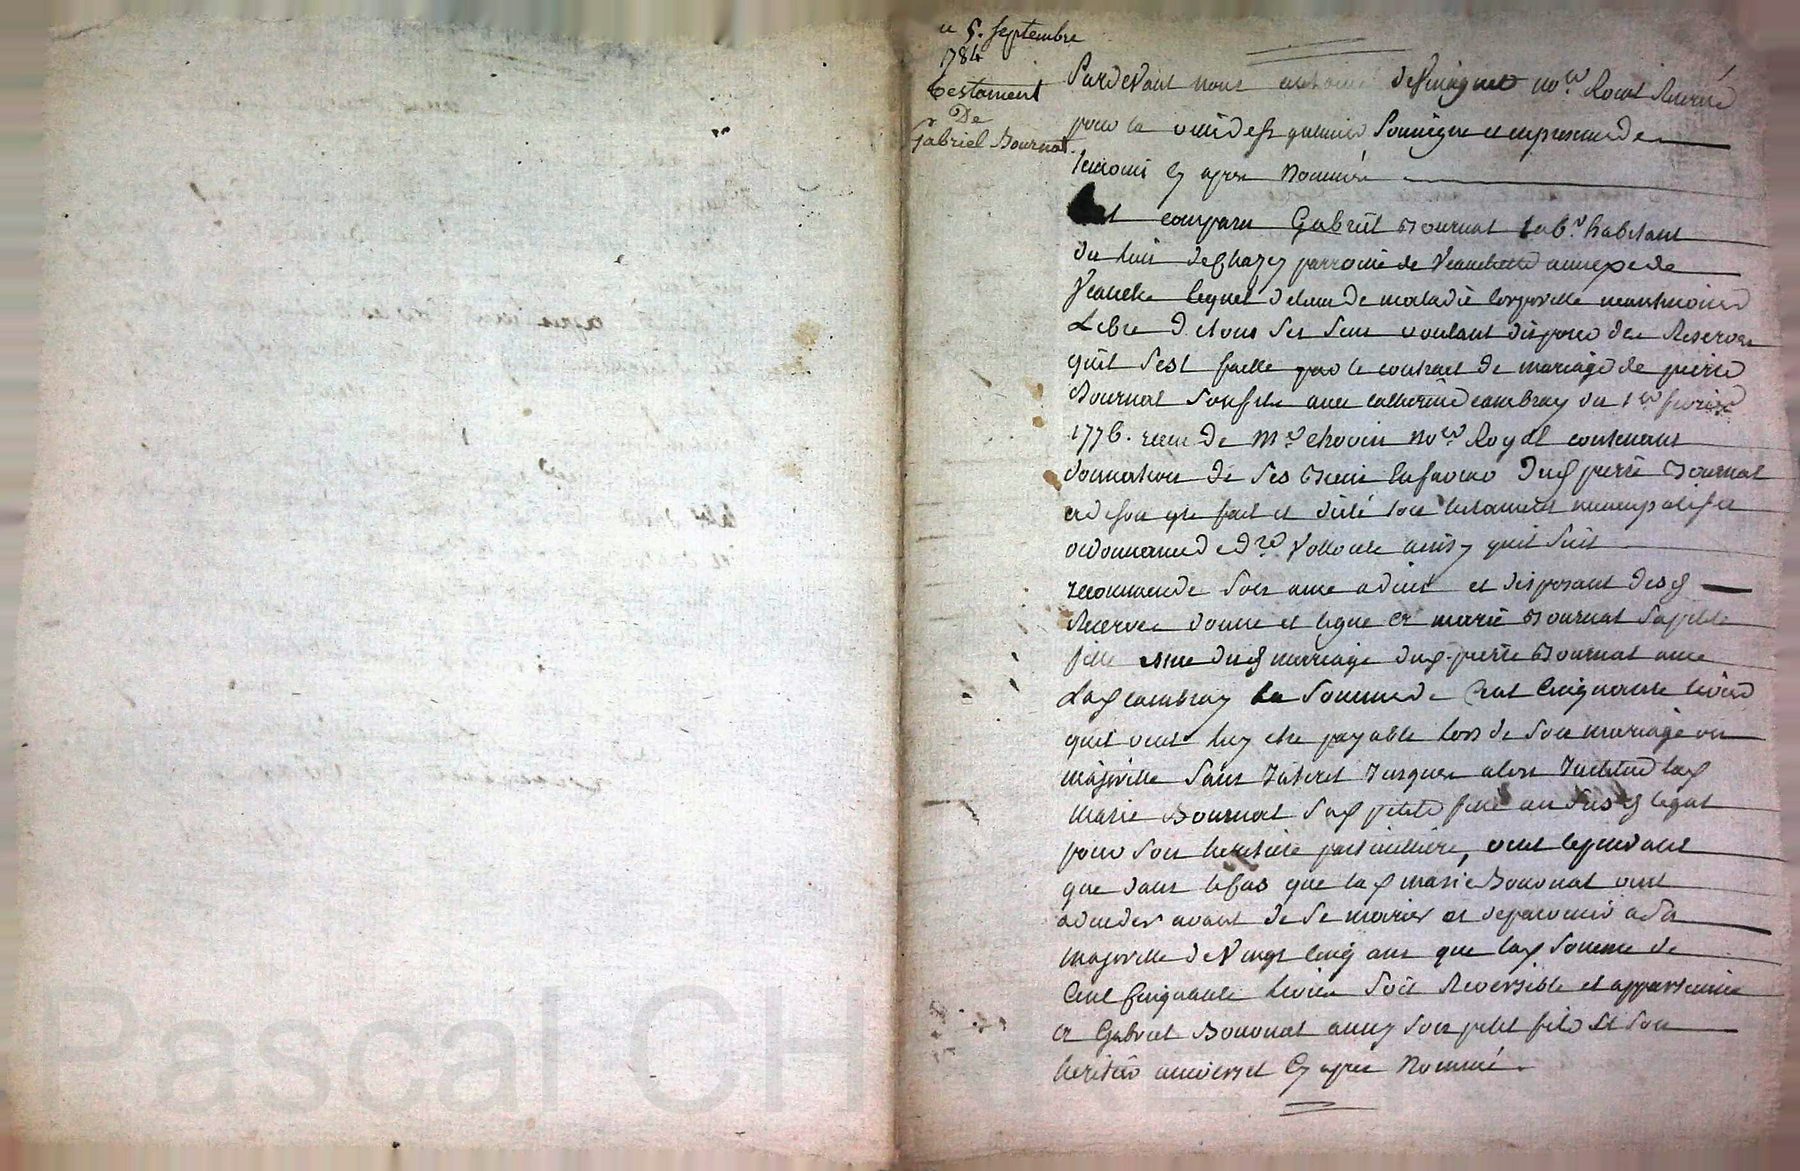 ce 5. septembre
1784
testament
De
Gabriel Bournat.
Pardevant nous no.re Royal Reservé
pour la ville de st galmier soussigné et en presence de
temoins cy apres Nommés
Est comparu Gabriel Bournat lab.r habitant
du lieu de Chazey parroisse de Veauchette annexe de
Veauche lequel detenu de maladie corporelle neantmoins
Libre de tous ses sens voulant disposer des Reserves
quil s'est faitte par le contrat de mariage de pierre
Bournat son fils avec catherine cambray du 1er fevrier
1776. recu de Mre chovin no.re Royal contenant
donnation de ses Biens en faveur dud pierre Bournat
a de son gré fait et dicté son testament nuncupatif et
ordonnance de d.re Vollonté ainsy quil suit
recommende son ame a dieu et disposant desd
Reserves donne et legue a marie Bournat sa petite
fille issue dud mariage dud. pierre Bournat avec
Lad cambray la somme de Cent Cinquante livres
quil veut luy etre payable lors de son mariage ou
majorité sans Interet Jusques alors Instituë lad
Marie Bournat sad petite fille au susd legat
pour son heritiere particulliere, veut cependant
que dans le cas que lad marie Bournat vint
a deceder avant de se marier et de parvenir a sa
majorité de Vingt cinq ans que lad somme de
Cent Cinquante livres soit Reversible et appartienne
a Gabriel Bournat aussy son petit fils et son
heritier universel Cy apres Nommé.
Pascal CH